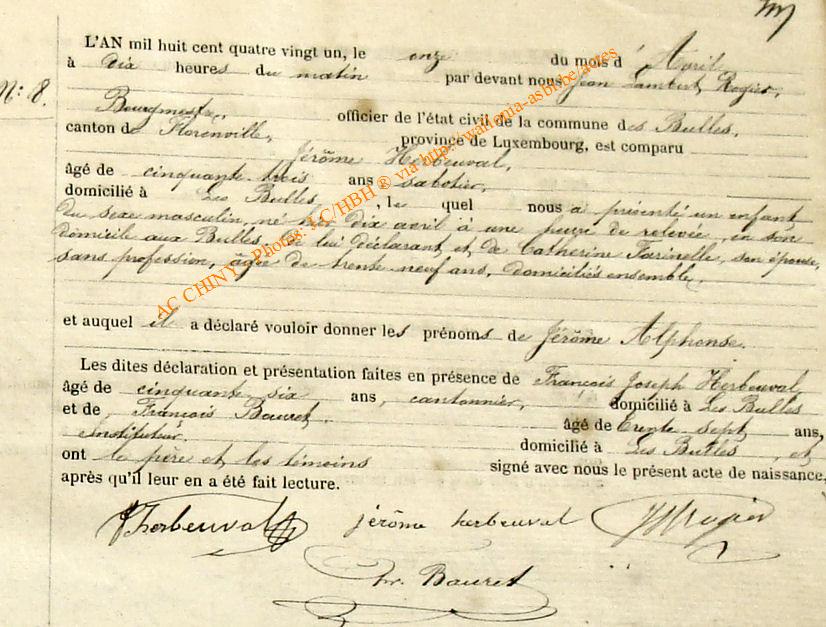 L'AN mil huit cent quatre vingt un, le onze du mois d'Avril
N° 8.
à dix heures du matin par devant nous Jean Lambert Rogier,
Bourgmestre, officier de l'état civil de la commune des Bulles,
canton de Florenville, province de Luxembourg, est comparu
Jérôme Herbeuval,
âgé de cinquante trois ans sabotier,
domicilié à Les Bulles, le quel nous a présenté un enfant
du sexe masculin, né hier dix avril à une heure de relevée, en son
domicile aux Bulles, de lui déclarant et de Catherine Farinelle, son épouse,
sans profession, âgée de trente neuf ans, domiciliés ensemble,
et auquel il a déclaré vouloir donner les prénoms de Jérôme Alphonse.
Les dites déclaration et présentation faites en présence de François Joseph Herbeuval
âgé de cinquante six ans, cantonnier, domicilié à Les Bulles
et de François Bauret, âgé de trente sept ans,
Instituteur, domicilié à Les Bulles, et
ont le père et les témoins signé avec nous le présent acte de naissance,
après qu'il leur en a été fait lecture.
Jherbeuval jérôme herbeuval JLRogier
Bauret
AC CHINY - Photos: LC/HBH ® via http://wallonia-asbl.be/actes